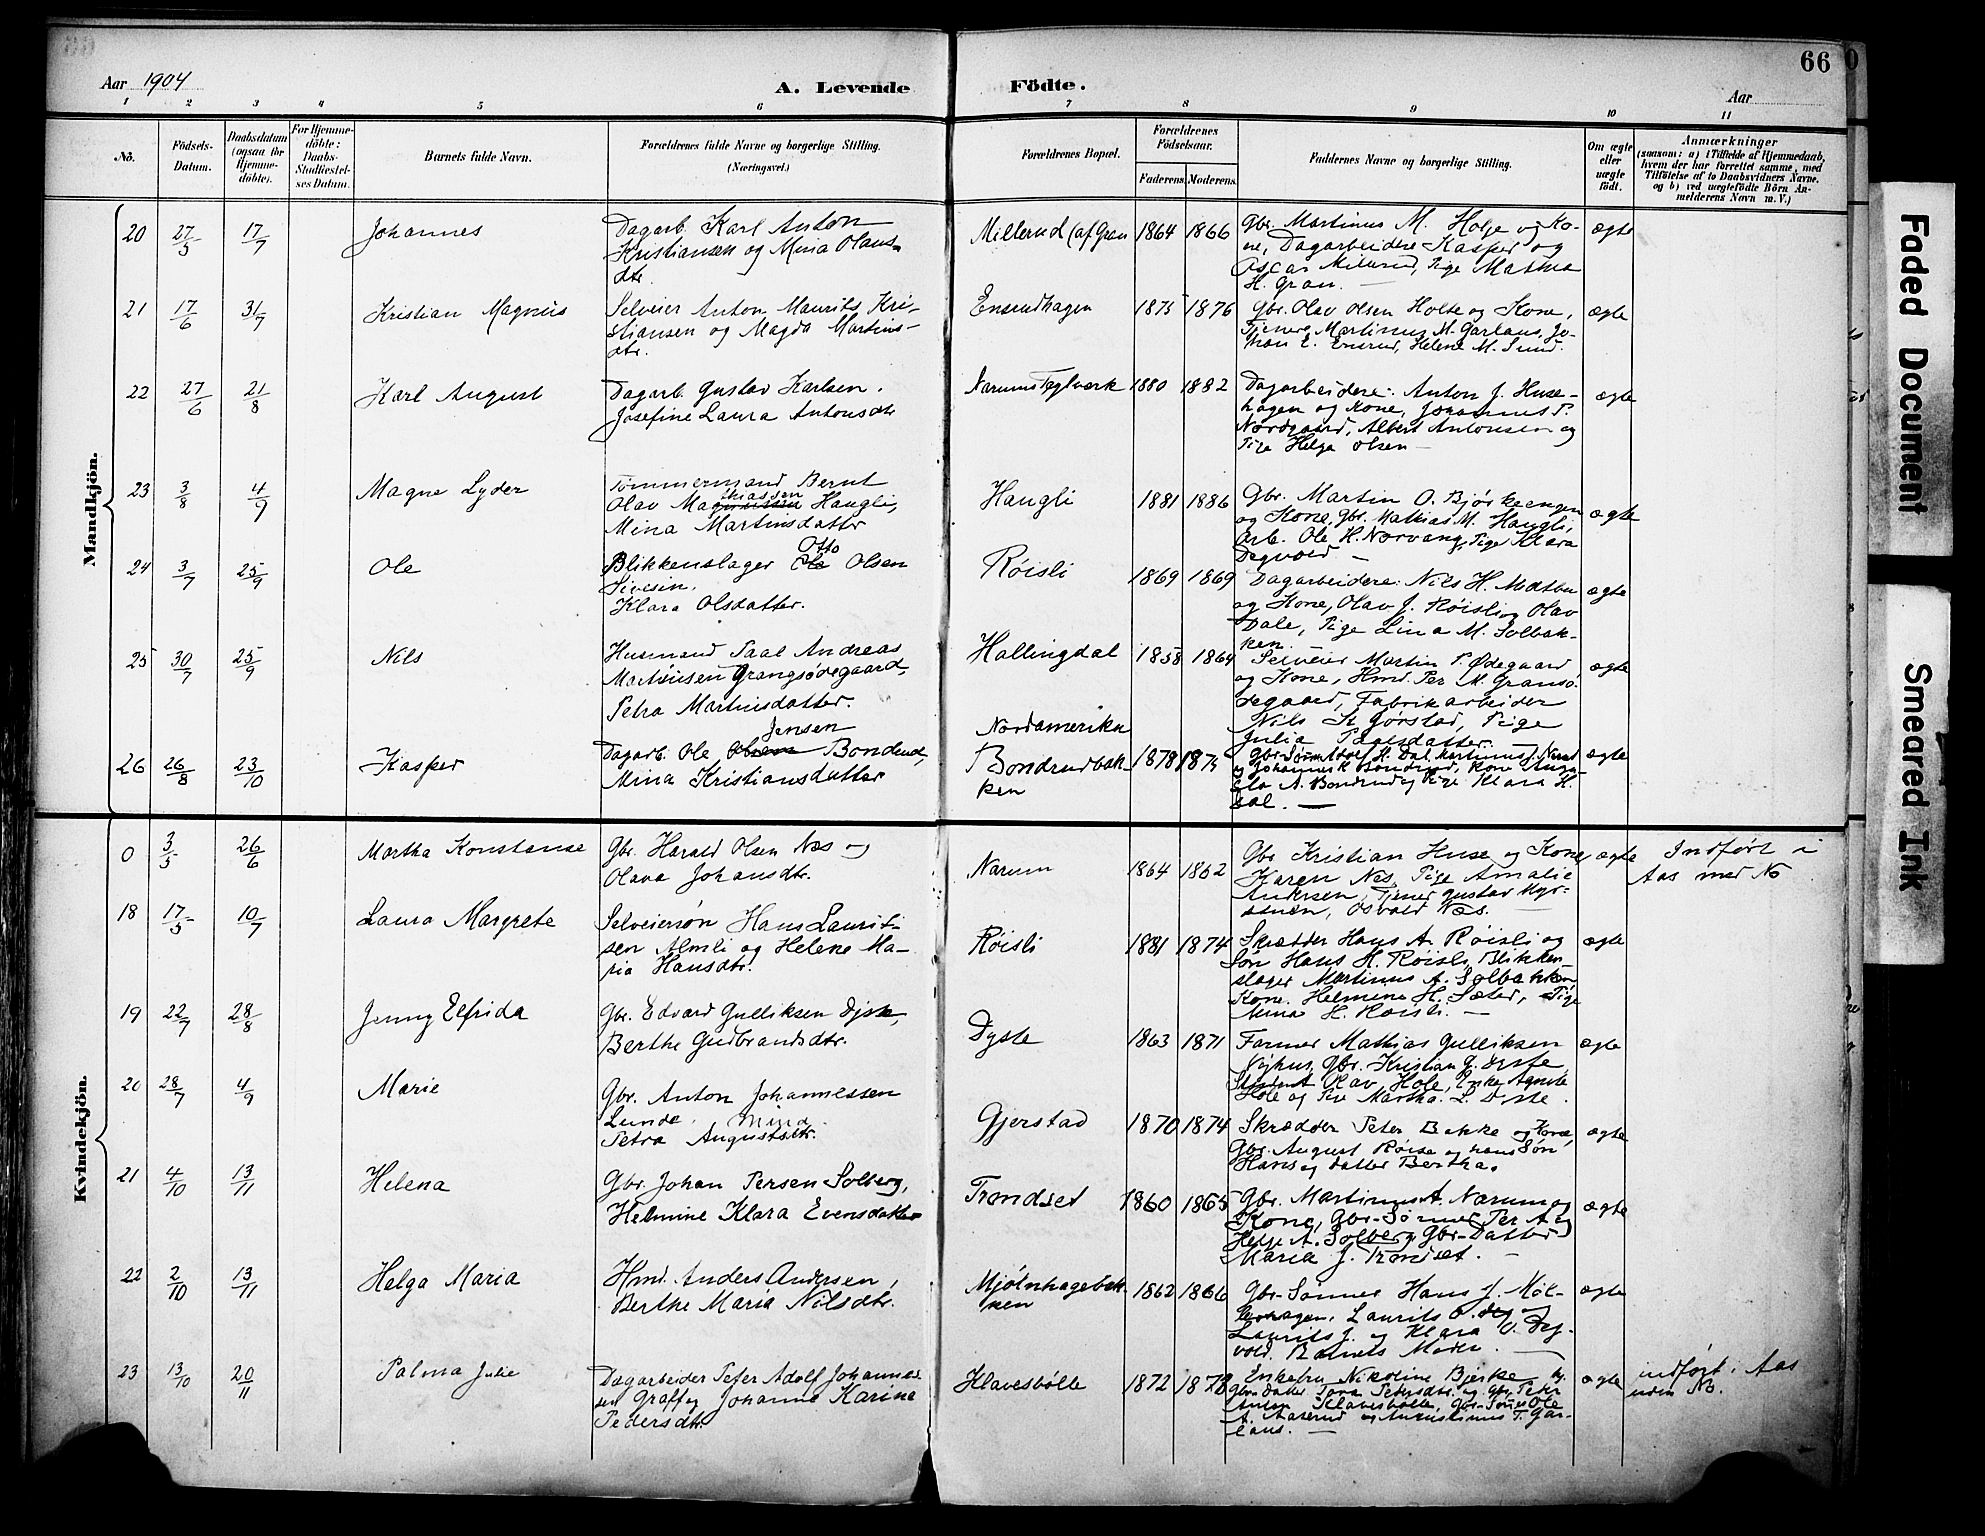 66
Aar 1904
A. Levende
Födte.
Aar
1 2 3 4 5 6 7 8 9 10 11
No.
Födsels-
Datum.
Daabsdatum
(ogsaa for
Hjemme-
döbte).
For Hjemme-
döbte:
Daabs-
Stadfæstel-
ses Datum.
Barnets fulde Navn.
Forældrenes fulde Navne og borgerlige Stilling.
(Næringsvei.)
Forældrenes Bopæl.
Forældrenes
Födselsaar.
Faderens. Moderens.
Faddernes Navne og borgerlig Stilling.
Om ægte
eller
uægte
födt.
Anmærkninger
(saasom: a) i Tilfælde af Hjemmedaab,
hvem der har forrettet samme, med
Tilföielse af to Daabsvidners Navne,
og b) ved uægtefödte Börn An-
melderens Navn m. V.)
Mandkjön.
20 27/5 17/7 Johannes
Dagarb. Karl Anton
Kristiansen og Mina Olaus-
dtr.
Millerud (af Gran 1864 1866
Gbr. Martinus M. Holje og Ko-
ne, Dagarbeidere Kasper og
Oscar Millerud, Pige Mathea
H. Gran. —
ægte
21 17/6 31/7 Kristian Magnus
Selveier Anton Maurits Kri-
stiansen og Magda Martins-
dtr.
Ensrudhagen 1875 1876
Gbr. Olav Olsen Holte og Kone,
Tjenere Martinus M. Garlaus, Jo-
han E. Ensrud, Helene M. Sund.
ægte
22 27/6 21/8 Karl August
Dagarb. Gustav Karlsen.
Josefine Laura Antonsdtr
Narums Teglverk 1880 1882
Dagarbeidere: Anton J. Huse-
hagen og Kone, Johannes P.
Nordgaard, Albert Antonsen og
Pige Helga Olsen —
ægte
23 3/8 4/9 Magne Lyder
Tömmermand Bernt
thiassen
Olav Ma Haugli,
Mina Martinsdatter
Haugli 1881 1886
Gbr. Martin O. Bjørkeengen
og Kone, Gbr. Mathias M. Haugli,
Arb. Ole H. Norvang, Pige Klara
Degvold —
ægte
24 3/7 25/9 Ole
Otto
Blikkenslager Ole Olsen
Sivesin.
Klara Olsdatter.
Röisli 1869 1869
Dagarbeidere: Nils H. Mætbu
og Kone, Olav J. Röisli og Olav
Dale, Pige Lina M. Solbak-
ken.
ægte
25 30/7 25/9 Nils
Husmand Paal Andreas
Mathisen Grangsödegaard,
Petra Martinsdatter.
Hallingdal 1858 1864
Selveier Martin P. Ødegaard
og Kone, Hmd. Per M. Gransö-
degaard, Fabrikarbeider
Nils K. Gjörstad, Pige
Julia Paalsdatter.
ægte
26 26/8 23/10 Kasper
Jensen
Dagarb. Ole Olsen Bondrud,
Mina Kristiansdatter
Nordamerika
Bondrudbak-
ken
1878 1875
Gbr. Sön Adolf H. Dal, Martinus J. Narud
og Johannes K Bondrud, Kone Ange-
la A. Bondrud og Pige Klara H.
Dal. —
ægte
Kvindekjön.
0 3/5 26/6 Martha Konstanse
Gbr. Harald Olsen Næs og
Olava Johansdtr.
Narum 1864 1862
Gbr Kristian Huse og Kone,
Karen Næs, Pige Amalie
Andersen, Tjener Gustav Myr-
stuen, Osvald Næs. —
ægte
Indført i
Aas med No
18 17/5 10/7 Laura Margrete
Selveiersön Hans Laurit-
sen Almli og Helene Ma-
ria Hansdtr.
Röisli 1881 1874
Skrædder Hans A. Röisli og
Sön Hans H. Röisli, Blikken-
slager Martinus A. Solbakken,
Kone Helmine H. Sæter, Pige
Anna H. Röisli. —
ægte
19 22/7 28/8 Jenny Elfrida
Gbr. Edvard Gulliksen Dyste,
Berthe Gudbrandsdtr.
Dyste 1863 1871
Farmer Mathias Gulliksen
Nyhus, Gbr. Kristian G. Dyste,
Student Olav Hole, Enke Agnete
Hole og Pige Martha L. Dyste.
ægte
20 28/7 4/9 Marie
Gbr. Anton Johannessen
Lunde. Mina
Petra Augustsdtr.
Gjerstad 1870 1874
Skrædder Peter Bakke og Kone,
Gbr. August Röise og hans Sön
Hans og datter Bertha.
ægte
21 4/10 13/11 Helena
Gbr. Johan Persen Solberg,
Helmine Klara Evensdatter
Trondset 1860 1865
Gbr. Martinus A. Narum og
Kone, Gbr-Sönner Per A. og
Helge A. Solberg, Gbr-Datter
Maria J. Trondsæt. —
ægte
22 2/10 13/11 Helga Maria
Hmd. Anders Andersen,
Berthe Maria Nilsdtr.
Mjölnhagebak-
ken
1862 1866
Gbr-Sönner Hans J. Möl-
lerhagen, Laurits
Laurits J. og Klara O. Deg-
vold. Barnets Moder. —
ægte
23 13/10 20/11 Palma Julie
Dagarbeider Peter Adolf Johannes-
sen Graff og Johanne Karine
Pedersdtr.
Klavesbölte 1872 1878
Enkefru Nikoline Bjerke og
Gbr-Datter Tora Petersdtr. og Gbr. Peter
Anton Klavesbölle, Gbr-Sön Ole
A. Aaserud og Augustinus T. Gar-
laus. —
ægte
indført i Aas
uden No.
Faded Document
Smeared Ink